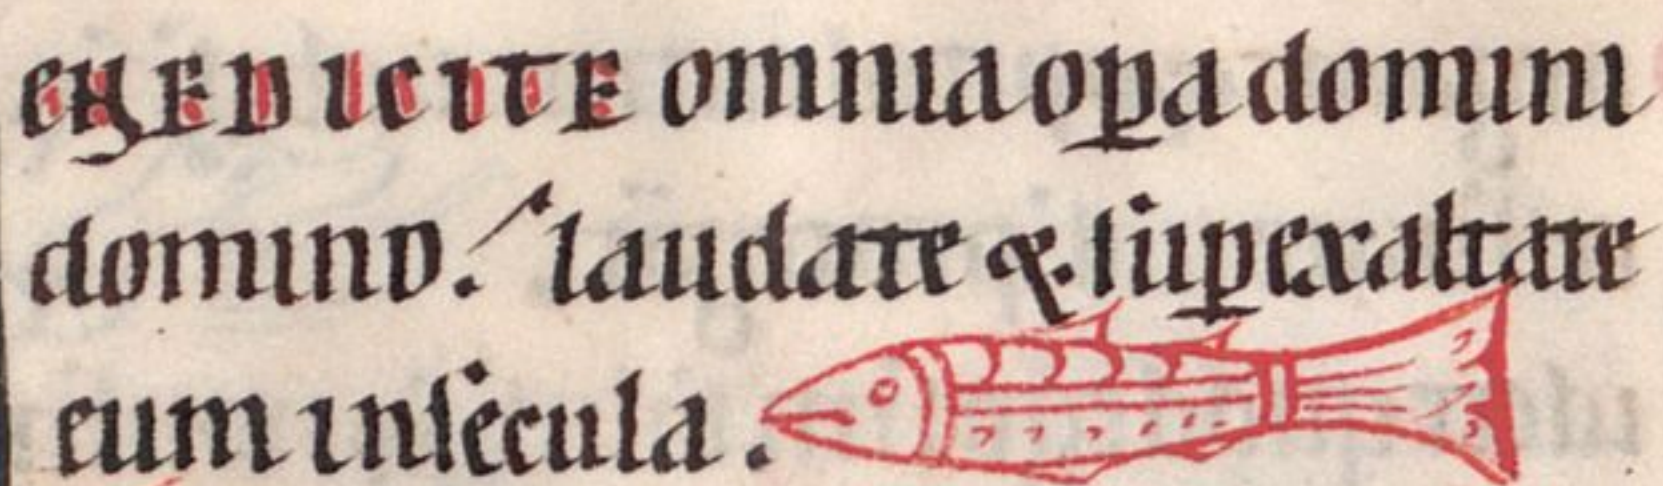 ENEDICITE omnia oꝑa domini
domino. laudate &. suꝑexaltate
eum insecula.